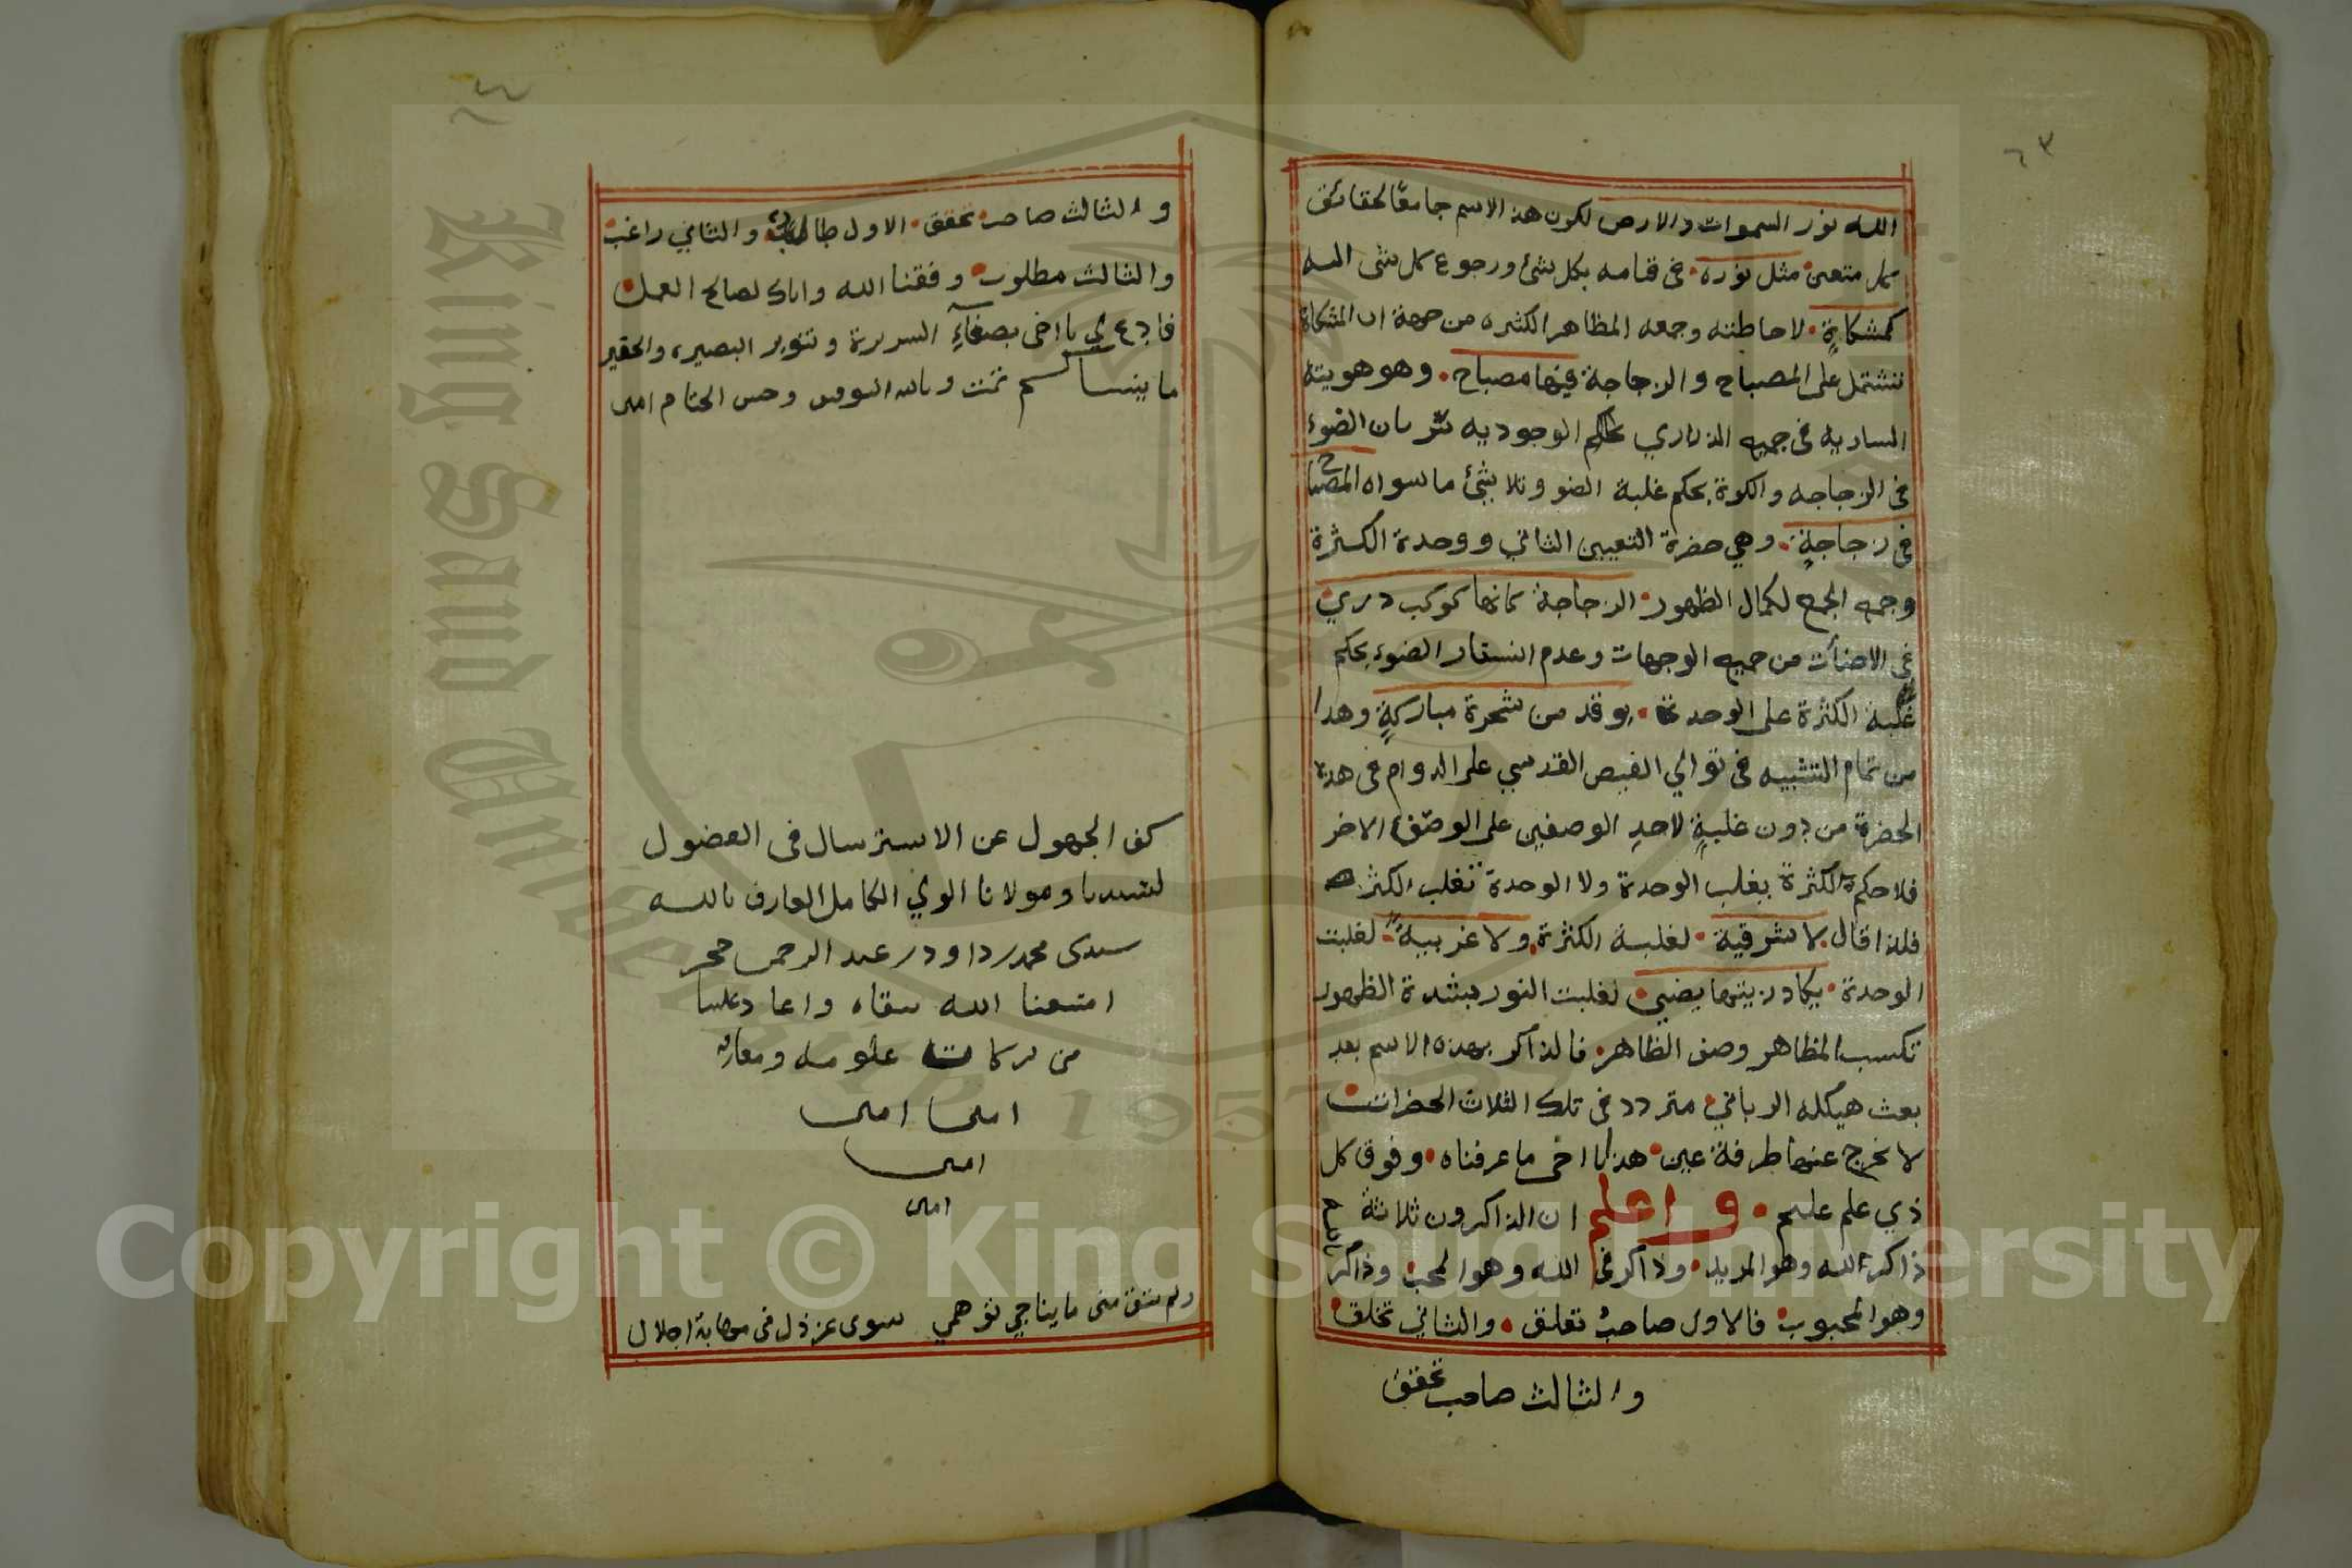 ٦٣
الله نور السموات والارض لكون هذا الاسم جامعًا لحقائق
كل متعين مثل نوره في قيامه بكل شئ ورجوع كل شي اليه
كمشكاةٍ لاحاطته وجمعه المظاهر الكثيره من جهة ان المشكاة
تشتمل على المصباح والزجاجة فيها مصباح وهو هويته
الساريه في جميع الذراري بحكم الوجوديه سَرَيان الضوء
في الزجاجه والكوة بحكم غلبة الضو وتلاشئ ما سواه المصباح
في زجاجةٍ وهي حضرة التعيين الثاني ووحدة الكثرة
وجمع الجمع لكمال الظهور الزجاجة كانها كوكب دري
في الاضأت من جميع الوجهات وعدم استتار الضوء بحكم
غلبة الكثرة على الوحدة يوقد من شجرة مباركةٍ وهذا
من تمام التشبيه في توالي الفيض القدسي على الدوام في هذه
الحضرة من دون غلبةٍ لاحدِ الوصفين على الوصف الاخر
فلا حكم الكثرة يغلب الوحدة ولا الوحدة تغلب الكثرة
فلذا قال لا شرقية لغلبة الكثرة ولا غربية لغلبت
الوحدة يكاد زيتها يضيي لغلبت النور بشدة الظهور
تكسب المظاهر وصف الظاهر فالذاكر بهذه الاسم بعد
بعث هيكله الرباني متردد في تلك الثلاث الحضرات
لا يخرج عنها طرفة عين هذا يا اخى ما عرفناه وفوق كل
ذي علم عليم واعلم ان الذاكرون ثلاثة
ذاكر لله وهو المريد وذاكر في الله وهو المحب وذاكر بالله
وهو المحبوب فالاول صاحب تعلق والثاني تخلق
والثالث صاحب تحقق
٦٤
والثالث صاحب تحقق الاول طالب والثاني راغب
والثالث مطلوب وفقنا الله واياك لصالح العمل
فادع لي يا اخى بصفآءِ السريرة وتنوير البصيره والحقير
ما ينساكم تمت وبالله التوفيق وحسن الختام امين
كف الجهول عن الاسترسال في الفضول
لسيدنا ومولانا الولي الكامل العارف بالله
سيدى محمد بن داود بن عبد الرحمن حجر
امتعنا الله ببقاه واعاد علينا
من بركات علومه ومعارفه
امين امين
امين
امين
ولم يبق منى ما يناجي توهمي سوى عز ذل في مهابة اجلال
King Saud University
1957
Copyright © King Saud University